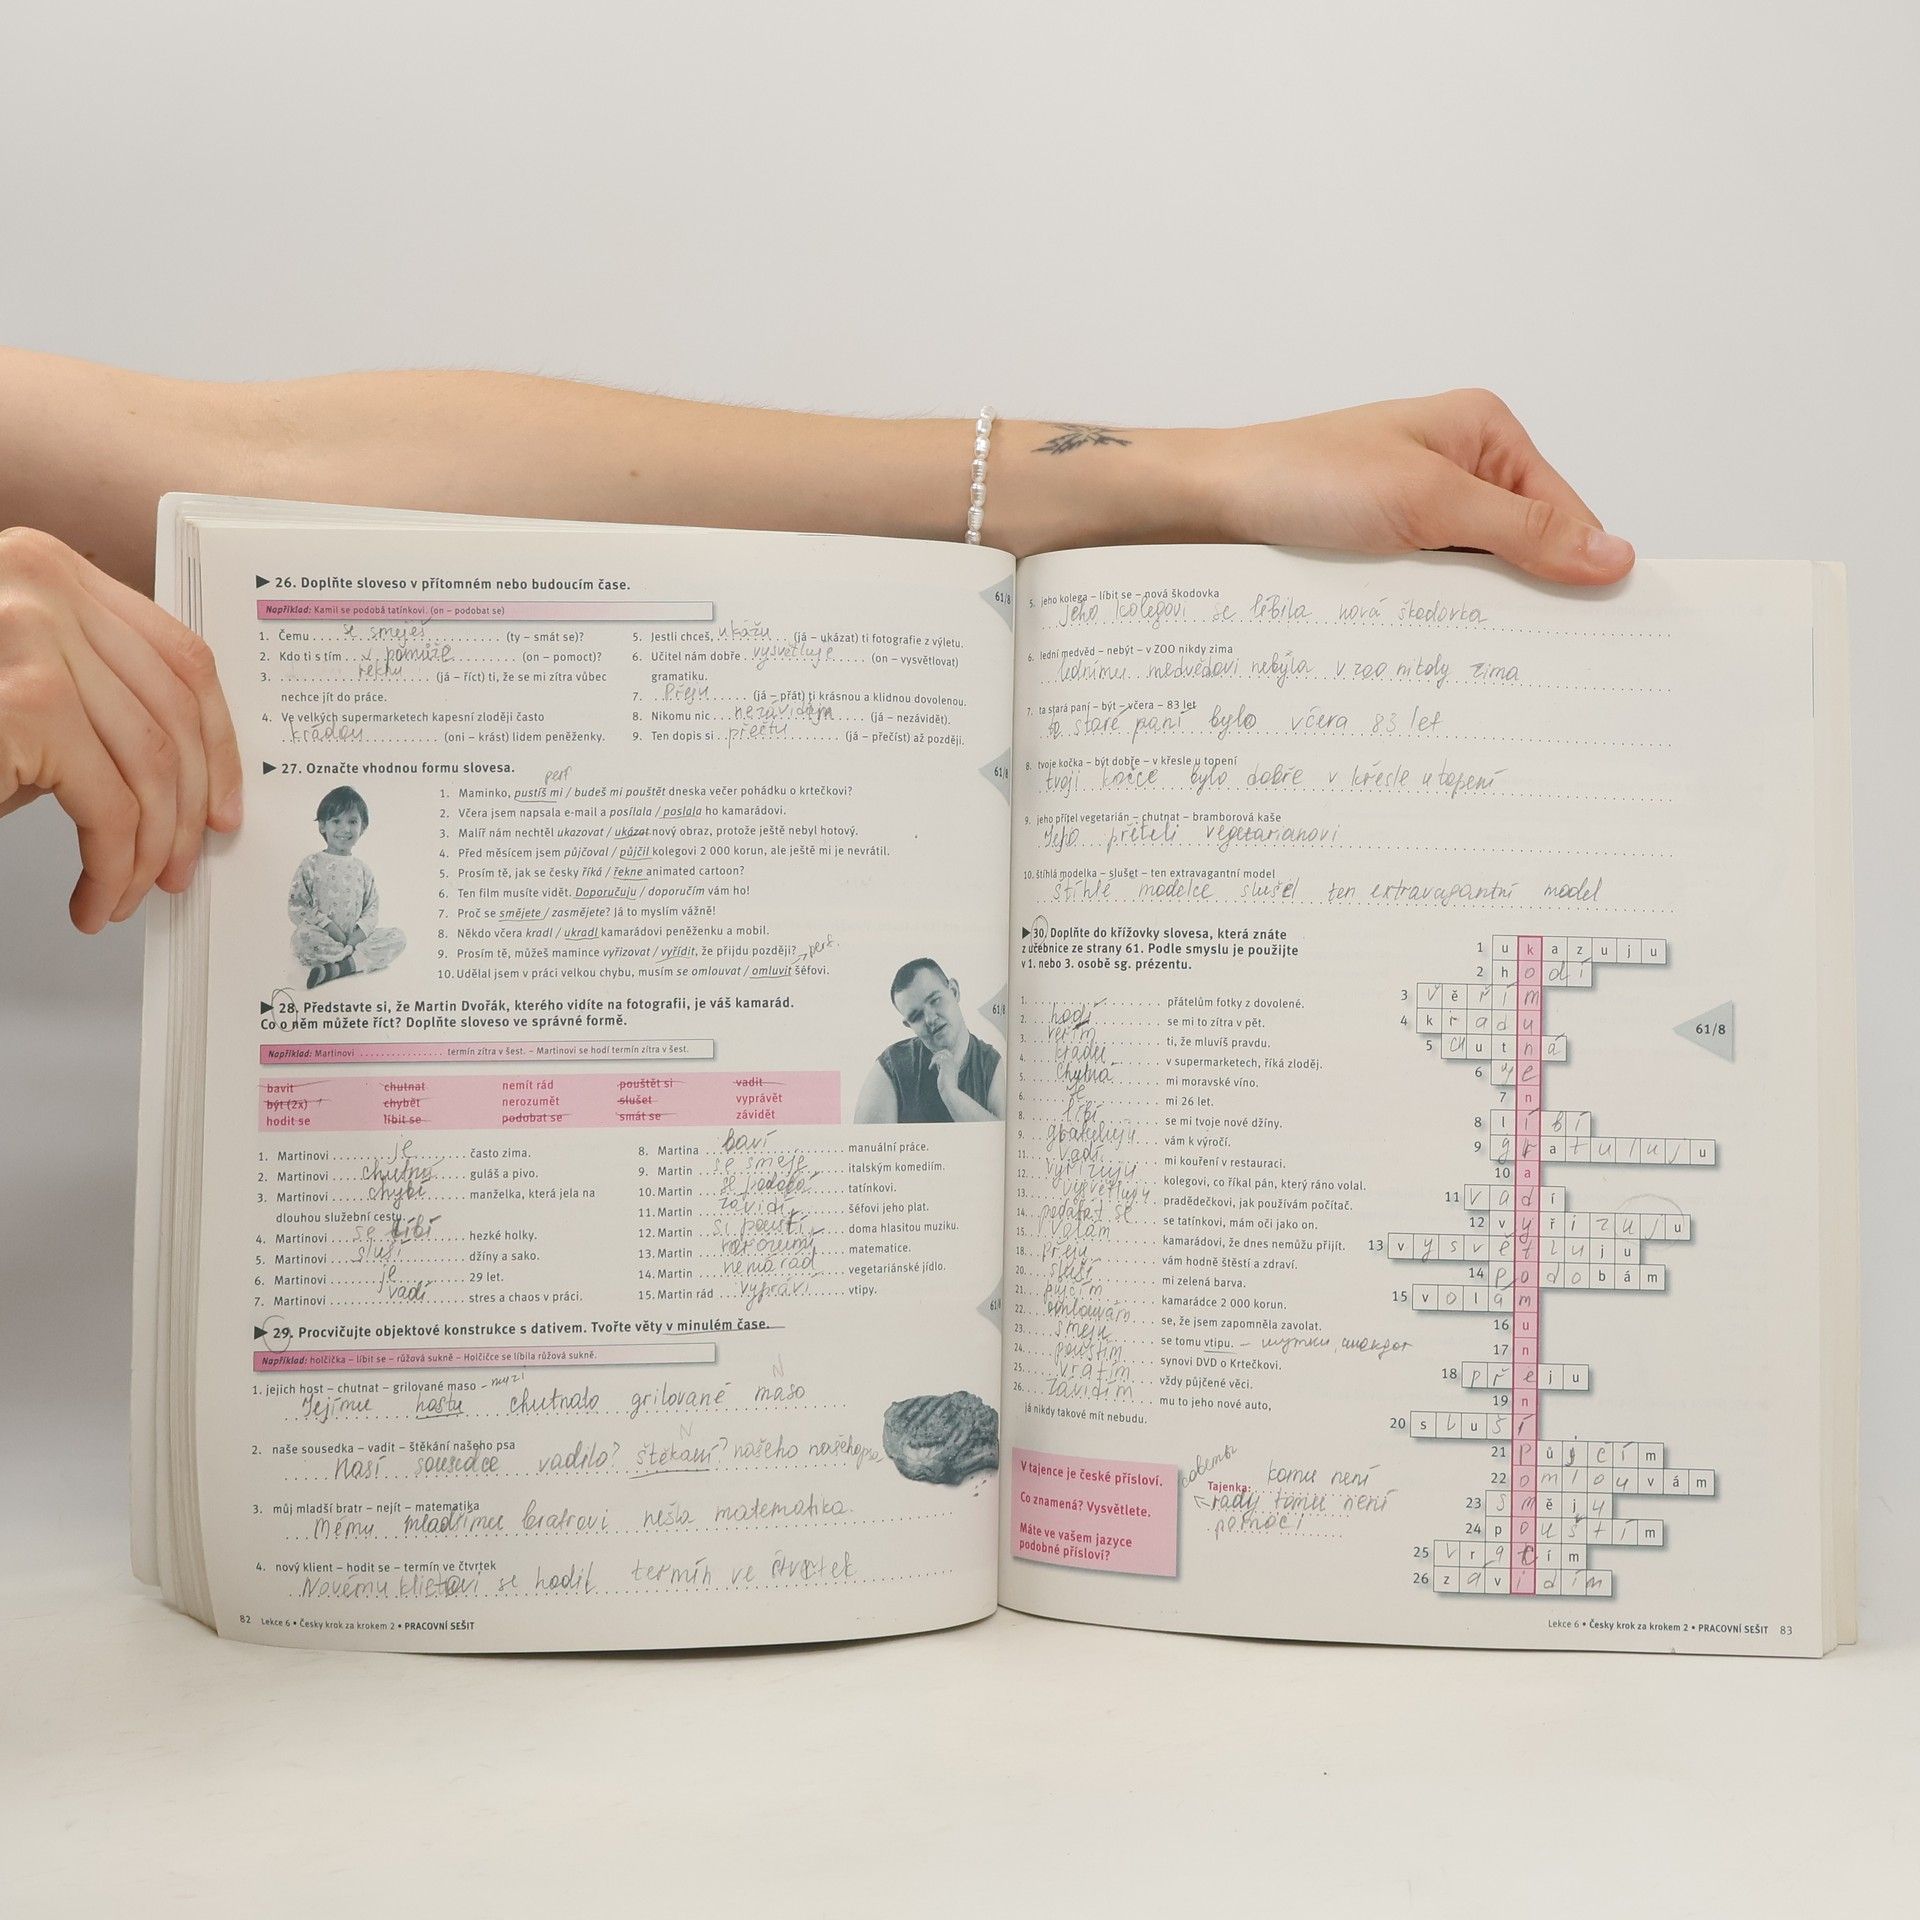 ▶ 26. Doplňte sloveso v přítomném nebo budoucím čase.
Například: Kamil se podobá tatínkovi. (on – podobat se)
1. Čemu se směješ (ty – smát se)?
2. Kdo ti s tím pomůže (on – pomoct)?
3. řeknu (já – říct) ti, že se mi zítra vůbec
nechce jít do práce.
4. Ve velkých supermarketech kapesní zloději často
krádou (oni – krást) lidem peněženky.
5. Jestli chceš, ukážu (já – ukázat) ti fotografie z výletu.
6. Učitel nám dobře vysvětluje (on – vysvětlovat)
gramatiku.
7. Přeju (já – přát) ti krásnou a klidnou dovolenou.
8. Nikomu nic nezávidím (já – nezávidět).
9. Ten dopis si přečtu (já – přečíst) až později.
61/8
▶ 27. Označte vhodnou formu slovesa.
perf
1. Maminko, pustíš mi / budeš mi pouštět dneska večer pohádku o krtečkovi?
2. Včera jsem napsala e-mail a posílala / poslala ho kamarádovi.
3. Malíř nám nechtěl ukazovat / ukázat nový obraz, protože ještě nebyl hotový.
4. Před měsícem jsem půjčoval / půjčil kolegovi 2 000 korun, ale ještě mi je nevrátil.
5. Prosím tě, jak se česky říká / řekne animated cartoon?
6. Ten film musíte vidět. Doporučuju / doporučím vám ho!
7. Proč se smějete / zasmějete? Já to myslím vážně!
8. Někdo včera kradl / ukradl kamarádovi peněženku a mobil.
9. Prosím tě, můžeš mamince vyřizovat / vyřídit, že přijdu později? perf.
10. Udělal jsem v práci velkou chybu, musím se omlouvat / omluvit šéfovi.
61/8
▶ 28. Představte si, že Martin Dvořák, kterého vidíte na fotografii, je váš kamarád.
Co o něm můžete říct? Doplňte sloveso ve správné formě.
Například: Martinovi ................. termín zítra v šest. – Martinovi se hodí termín zítra v šest.
61/8
bavit chutnat nemít rád pouštět si vadit
být (2x) chybět nerozumět slušet vyprávět
hodit se líbit se podobat se smát se závidět
1. Martinovi je často zima.
2. Martinovi chutná guláš a pivo.
3. Martinovi chybí manželka, která jela na
dlouhou služební cestu.
4. Martinovi se líbí hezké holky.
5. Martinovi sluší džíny a sako.
6. Martinovi je 29 let.
7. Martinovi vadí stres a chaos v práci.
8. Martina baví manuální práce.
9. Martin se směje italským komediím.
10. Martin se podobá tatínkovi.
11. Martin závidí šéfovi jeho plat.
12. Martin si pouští doma hlasitou muziku.
13. Martin nerozumí matematice.
14. Martin nemá rád vegetariánské jídlo.
15. Martin rád vypráví vtipy.
▶ 29. Procvičujte objektové konstrukce s dativem. Tvořte věty v minulém čase.
Například: holčička – líbit se – růžová sukně – Holčičce se líbila růžová sukně.
1. jejich host – chutnat – grilované maso
Jejímu hostu chutnalo grilované maso
2. naše sousedka – vadit – štěkání našeho psa
Naší sousedce vadilo? štěkaní? našeho našeho psa
3. můj mladší bratr – nejít – matematika
Mému mladšímu bratrovi nešla matematika.
4. nový klient – hodit se – termín ve čtvrtek
Novému klietovi se hodil termín ve čtvrtek
82 Lekce 6 • Česky krok za krokem 2 • PRACOVNÍ SEŠIT
5. jeho kolega – líbit se – nová škodovka
Jeho kolegovi se líbila nová škodovka
6. lední medvěd – nebýt – v ZOO nikdy zima
lednímu medvědovi nebyla v zoo nikdy zima
7. ta stará paní – být – včera – 83 let
té staré paní bylo včera 83 let
8. tvoje kočka – být dobře – v křesle u topení
tvojí kočce bylo dobře v křesle u topení
9. jeho přítel vegetarián – chutnat – bramborová kaše
Jeho příteli vegetarianovi
10. štíhlá modelka – slušet – ten extravagantní model
štíhlé modelce slušel ten extravagantní model
▶ 30. Doplňte do křížovky slovesa, která znáte
z učebnice ze strany 61. Podle smyslu je použijte
v 1. nebo 3. osobě sg. prézentu.
1. přátelům fotky z dovolené.
2. hodí se mi to zítra v pět.
3. věřím ti, že mluvíš pravdu.
4. kradu v supermarketech, říká zloděj.
5. chutná mi moravské víno.
6. je mi 26 let.
8. líbí se mi tvoje nové džíny.
9. gratuluju vám k výročí.
11. vadí mi kouření v restauraci.
12. vyřizuju kolegovi, co říkal pán, který ráno volal.
13. vysvětluju pradědečkovi, jak používám počítač.
14. podobat se se tatínkovi, mám oči jako on.
15. volám kamarádovi, že dnes nemůžu přijít.
18. přeju vám hodně štěstí a zdraví.
20. sluší mi zelená barva.
21. půjčím kamarádce 2 000 korun.
22. omlouvám se, že jsem zapomněla zavolat.
23. směju se tomu vtipu.
24. pouštím synovi DVD o Krtečkovi.
25. vrátím vždy půjčené věci.
26. závidím mu to jeho nové auto,
já nikdy takové mít nebudu.
1 ukazuju
2 hodí
3 věřím
4 kradu
5 chutná
6 je
7 n
8 líbí
9 gratuluju
10 a
11 vadí
12 vyřizuju
13 vysvětluju
14 podobám
15 volám
16 u
17 n
18 přeju
19 n
20 sluší
21 půjčím
22 omlouvám
23 směju
24 pouštím
25 vrátím
26 závidím
61/8
V tajence je české přísloví.
Co znamená? Vysvětlete.
Máte ve vašem jazyce
podobné přísloví?
Tajenka: komu není
rady tomu není
pomoci
Lekce 6 • Česky krok za krokem 2 • PRACOVNÍ SEŠIT 83